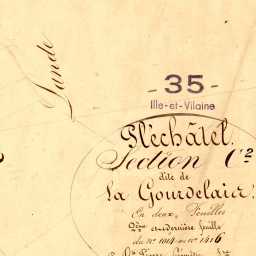 Lande
- 35 -
Ille-et-Vilaine
Fléchâtel.
Section C.2
dite de
La Gourdelais
En deux Feuilles
2ème et dernière feuille
du No. 1014 au No. 1416